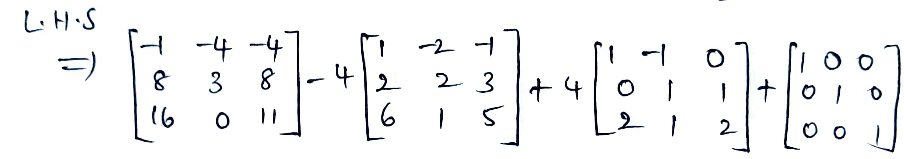 L.H.S
=) [-1 -4 -4; 8 3 8; 16 0 11] - 4 [1 -2 -1; 2 2 3; 6 1 5] + 4 [1 -1 0; 0 1 1; 2 1 2] + [1 0 0; 0 1 0; 0 0 1]